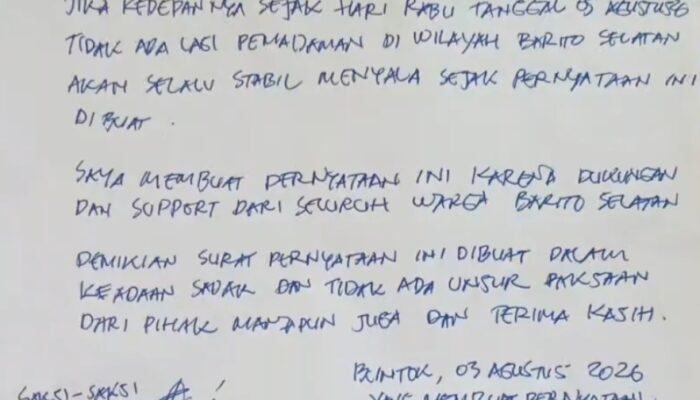 JIKA KEDEPANNYA SEJAK HARI RABU TANGGAL 05 AGUSTUS
TIDAK ADA LAGI PEMADAMAN DI WILAYAH BARITO SELATAN
AKAN SELALU STABIL MENYALA SEJAK PERNYATAAN INI
DIBUAT.
SAYA MEMBUAT PERNYATAAN INI KARENA DUKUNGAN
DAN SUPPORT DARI SELURUH WARGA BARITO SELATAN
DEMIKIAN SURAT PERNYATAAN INI DIBUAT DALAM
KEADAAN SADAR DAN TIDAK ADA UNSUR PAKSAAN
DARI PIHAK MANAPUN JUGA DAN TERIMA KASIH.
BUNTOK, 03 AGUSTUS 2026
SAKSI-SAKSI
YANG MEMBUAT PERNYATAAN